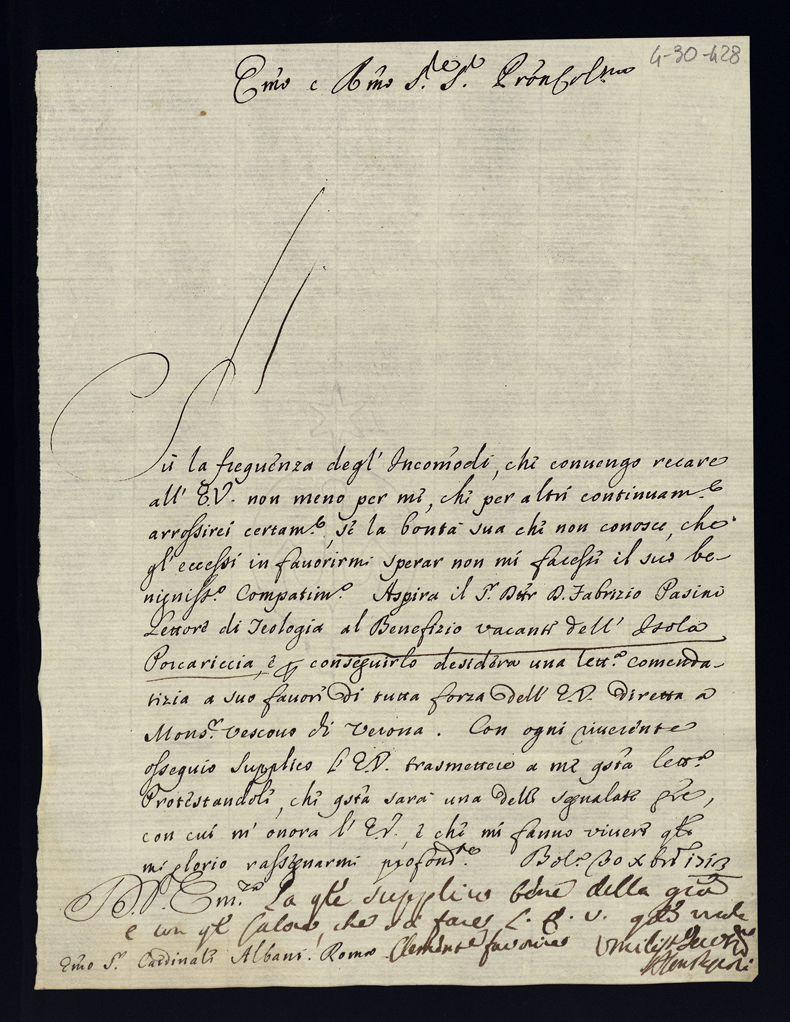 4-30-428
Emo e Rmo Sr. Sr. Pron Colmo
Sù la frequenza degl' Incomodi, che convengo recare
all' E.V. non meno per me, che per altri continuam.te
arrossirei certam.te, se la bontà sua che non conosce, che
gl' eccessi in favorirmi sperar non mi facesse il suo be-
nigniss.o Compatim.o Aspira il Sr. Dttr D. Fabrizio Pasini
Lettore di Teologia al Benefizio vacante dell' Isola
Porcariccia, e p conseguirlo desidera una lett.a comenda-
tizia a suo favore di tutta forza dell' E.V. diretta a
Mons.r Vescovo di Verona. Con ogni riverente
ossequio supplico l' E.V. trasmettere a me qsta lett.a
Protestandole, che qsta sarà una delle segnalate gre,
con cui m' onora l' E.V. e che mi fanno vivere qle
mi glorio rassegnarmi profond.te Bol.a 30 Xbre 1713
D. V. Em.za La qle supplico bene della gia
e con ql Calore, che sà fare
Clemente favorire Umiliss
Emo Sr. Cardinale Albani. Roma